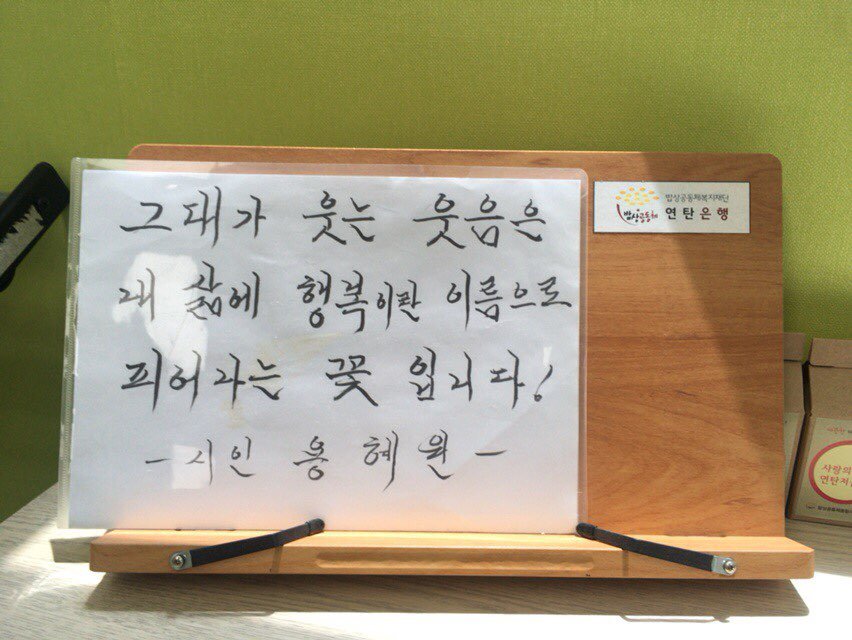 그대가 웃는 웃음은
내 삶에 행복이란 이름으로
피어나는 꽃 입니다!
- 시인 용혜원 -
밥상공동체복지재단
밥상공동체 연탄은행
사랑의
연탄저